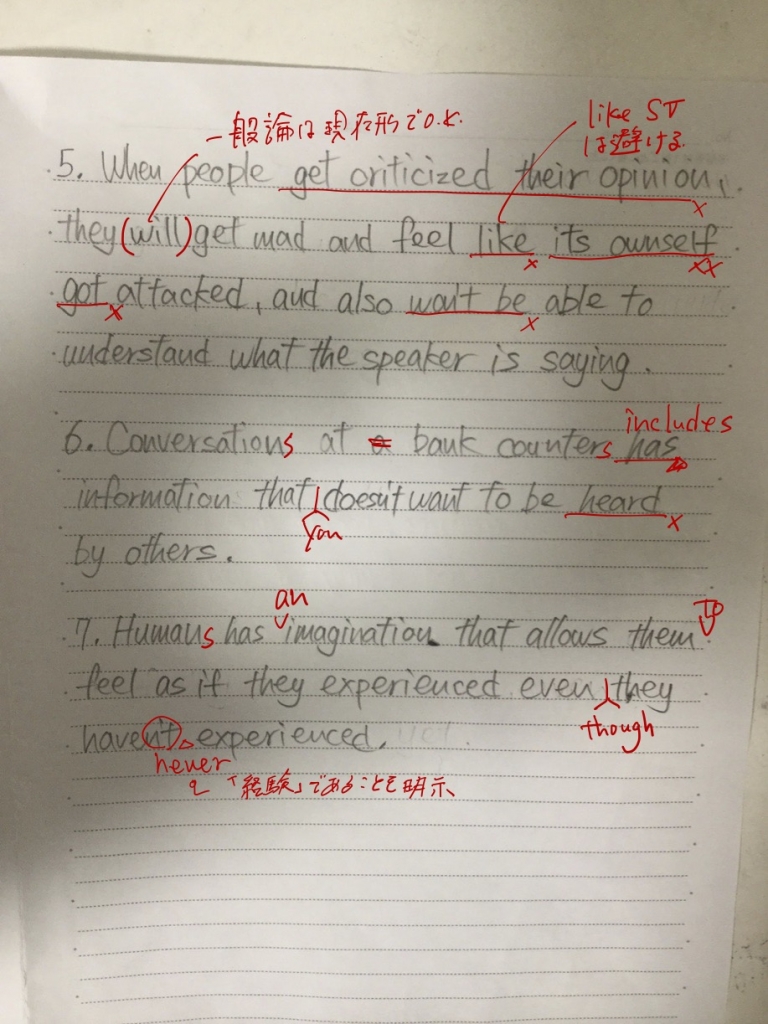 一般論は現在形でO.K.
like SV
は避ける
5. When people get criticized their opinion,
they (will) get mad and feel like its ownself
got attacked, and also won't be able to
understand what the speaker is saying.
includes
6. Conversations at a bank counters has
information that doesn't want to be heard
you
by others.
an
to
7. Humans has imagination that allows them
feel as if they experienced even they
though
haven't experienced.
never
「経験」であることを明示